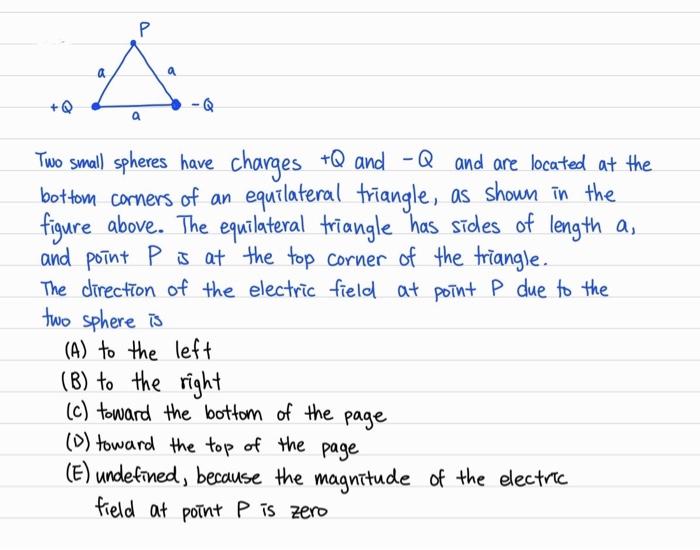 P
a
a
+Q
-Q
a
Two small spheres have charges +Q and -Q and are located at the
bottom corners of an equilateral triangle, as shown in the
figure above. The equilateral triangle has sides of length a,
and point P is at the top corner of the triangle.
The direction of the electric field at point P due to the
two sphere is
(A) to the left
(B) to the right
(C) toward the bottom of the page
(D) toward the top of the page
(E) undefined, because the magnitude of the electric
field at point P is zero